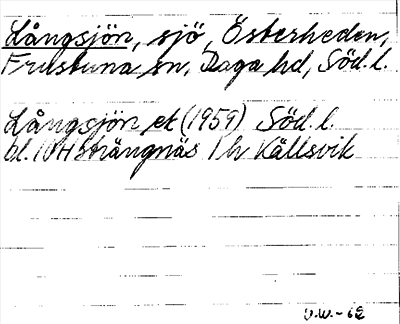 Långsjön, sjö, Österheden,
Frustuna sn, Daga hd, Söd. l.
Långsjön ek (1959) Söd. l.
bl. 10H Strängnäs 1h Källsvik
J.W.-62